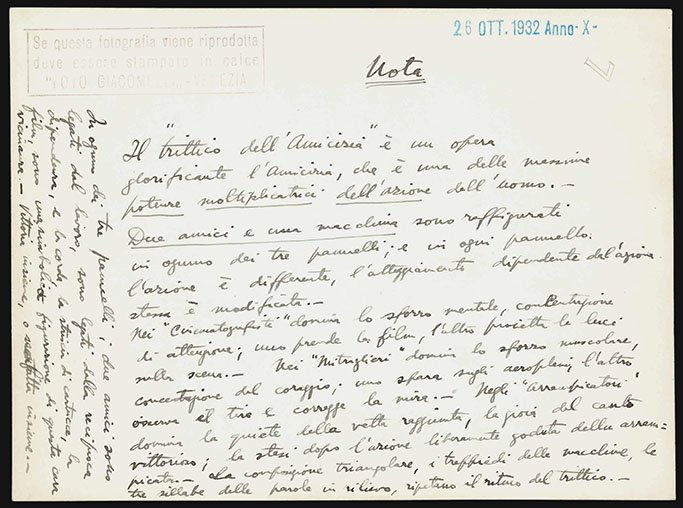 Se questa fotografia viene riprodotta
deve essere stampato in calce
"FOTO GIACOMELLI" - VENEZIA
26 OTT. 1932 Anno -X-
Nota
Il "trittico dell'Amicizia" è un opera
glorificante l'Amicizia, che è una delle massime
potenze moltiplicatrici dell'azione dell'uomo. -
Due amici e una macchina sono raffigurati
in ognuno dei tre pannelli; e in ogni pannello
l'azione è differente, l'atteggiamento dipendente dal'azione
stessa è modificato. -
Nei "Cinematografisti" domina lo sforzo mentale, concentrazione
di attenzione; uno prende la film, l'altro proietta le luci
sulla scena. - Nei "Mitraglieri" domina lo sforzo muscolare,
concentrazione del coraggio; uno spara sugli aeroplani, l'altro
osserva il tiro e corregge la mira. - Negli "Arrampicatori"
domina la quiete della vetta raggiunta, la gioia del canto
vittorioso; la stasi dopo l'azione liberamente goduta della arram=
picata. - La composizione triangolare, i treppiedi delle macchine, le
tre sillabe delle parole in rilievo, ripetono il ritmo del trittico. -
In ognuno dei tre pannelli i due amici sono
legati dal lavoro, sono legati dalla reciproca
dipendenza, e la corda, la striscia di cartucce, la
film, sono una simbolica figurazione di questa
vicinanza. - Vittoria insieme, o sconfitta insieme. -